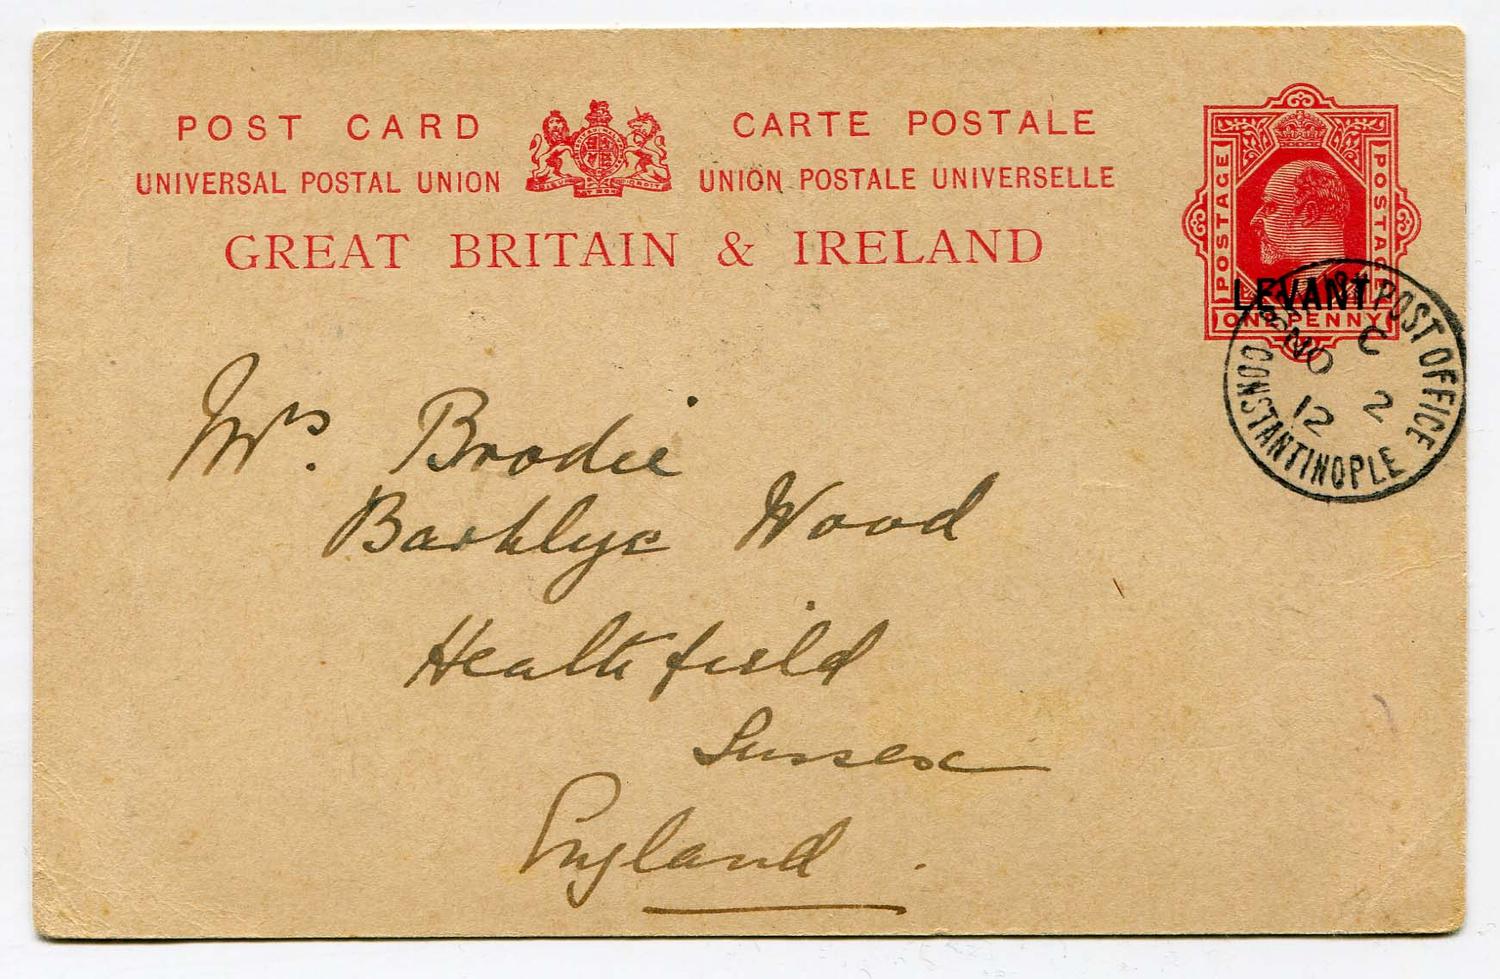 POST CARD CARTE POSTALE
UNIVERSAL POSTAL UNION UNION POSTALE UNIVERSELLE
GREAT BRITAIN & IRELAND
POSTAGE POSTAGE
LEVANT
ONE PENNY
BRITISH POST OFFICE
C
NO 2
12
CONSTANTINOPLE
Mrs. Brodie
Barklye Wood
Heathfield
Sussex
England.